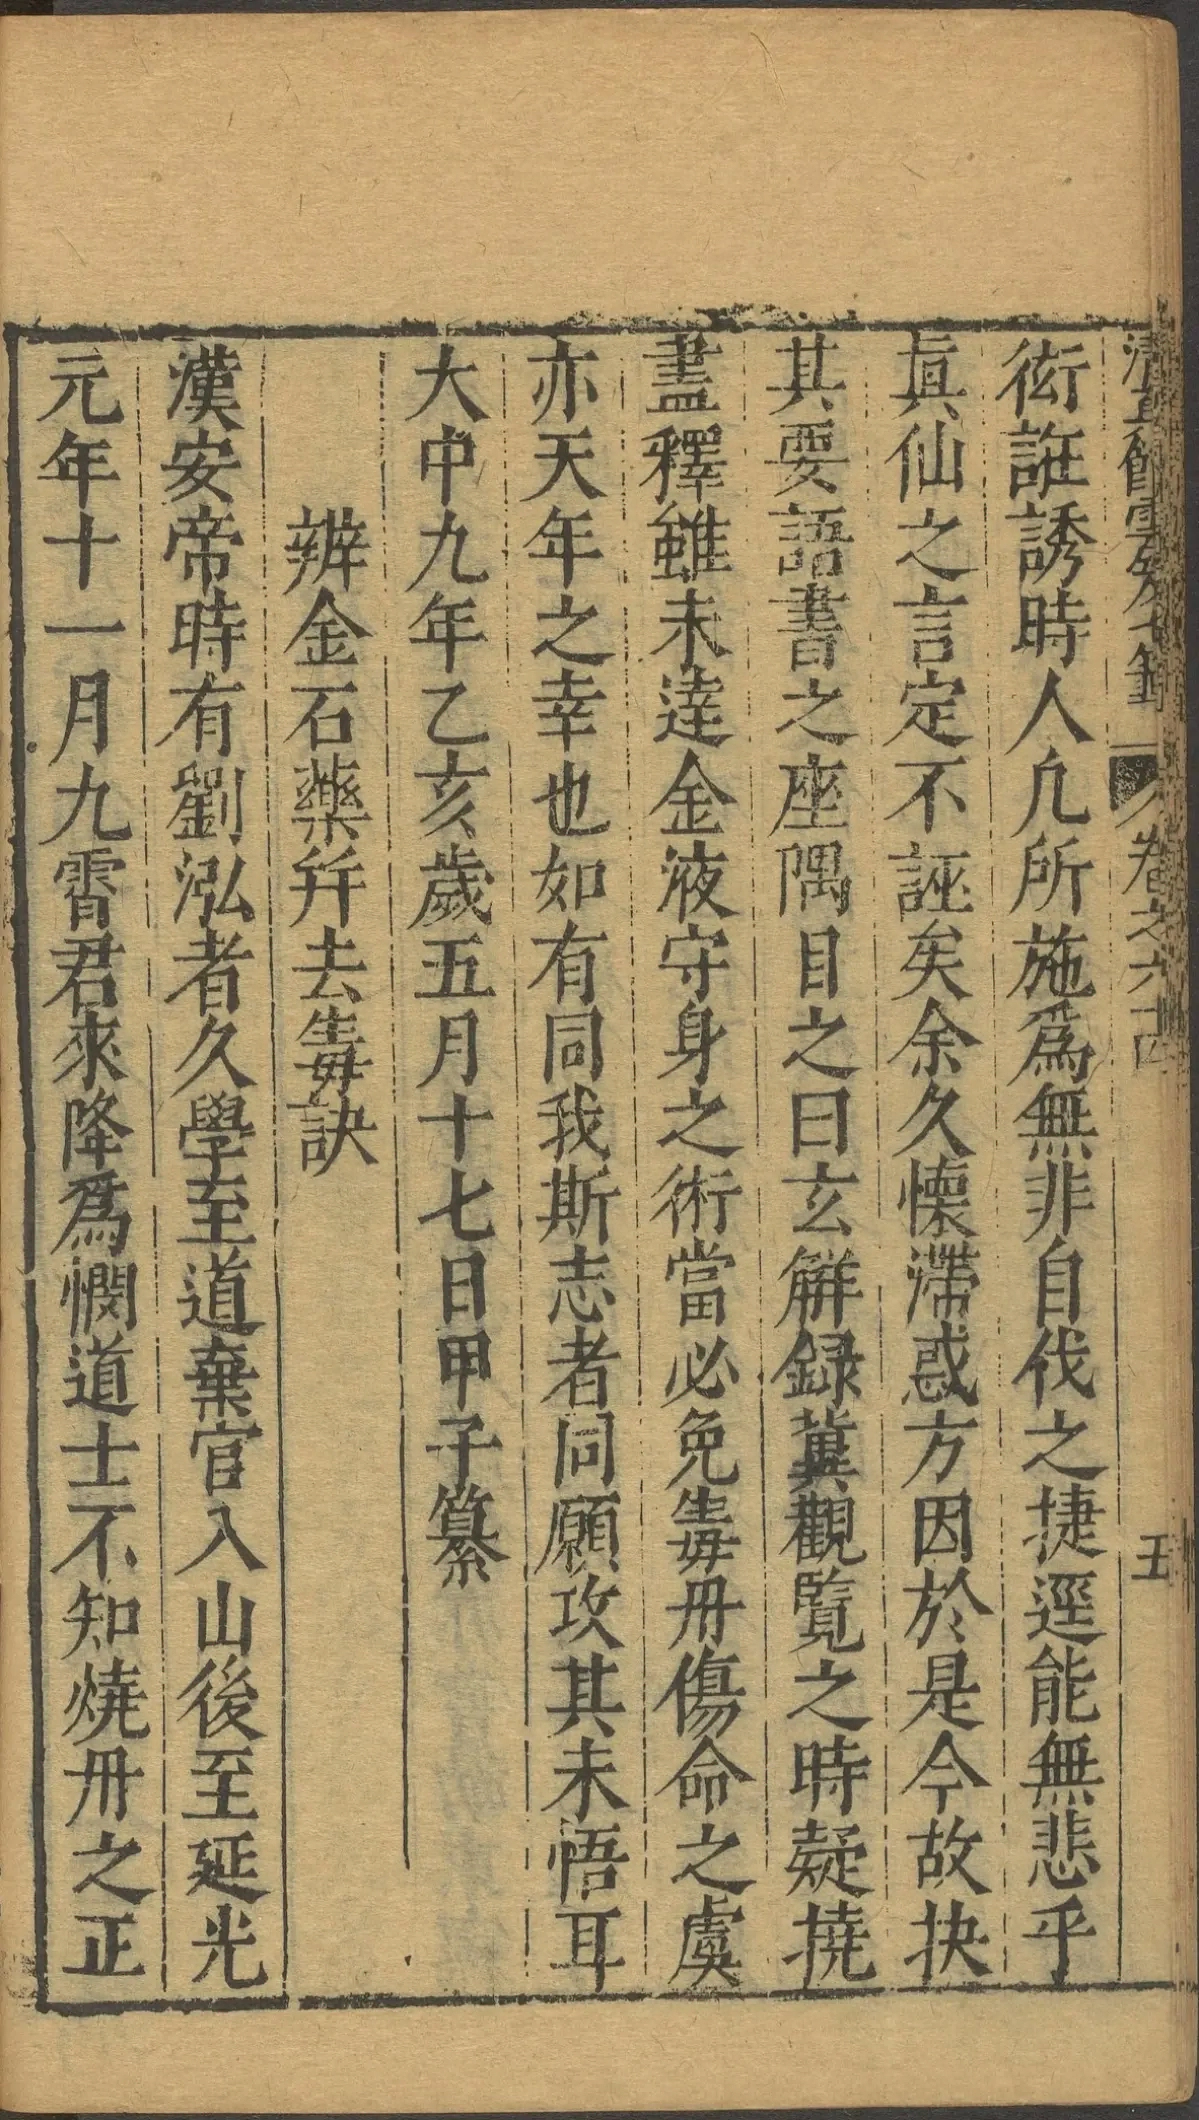 清真館雲笈七籤 卷之六十四 五
衒誑誘時人凡所施爲無非自伐之捷逕能無悲乎
眞仙之言定不誣矣余久懐滯惑方因於是今故抉
其要語書之座隅目之曰玄觧録冀觀覧之時疑撓
盡釋雖未達金液守身之術當必免毒丹傷命之虞
亦天年之幸也如有同我斯志者同願攻其未悟耳
大中九年乙亥歲五月十七日甲子纂
辨金石藥幷去毒訣
漢安帝時有劉泓者久學至道棄官入山後至延光
元年十一月九霄君來降爲憫道士不知燒丹之正